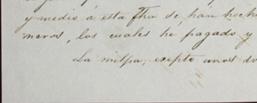 y medio á esta fha se han hech
meros, los cuales he pagado y
La milpa, exepto unos do